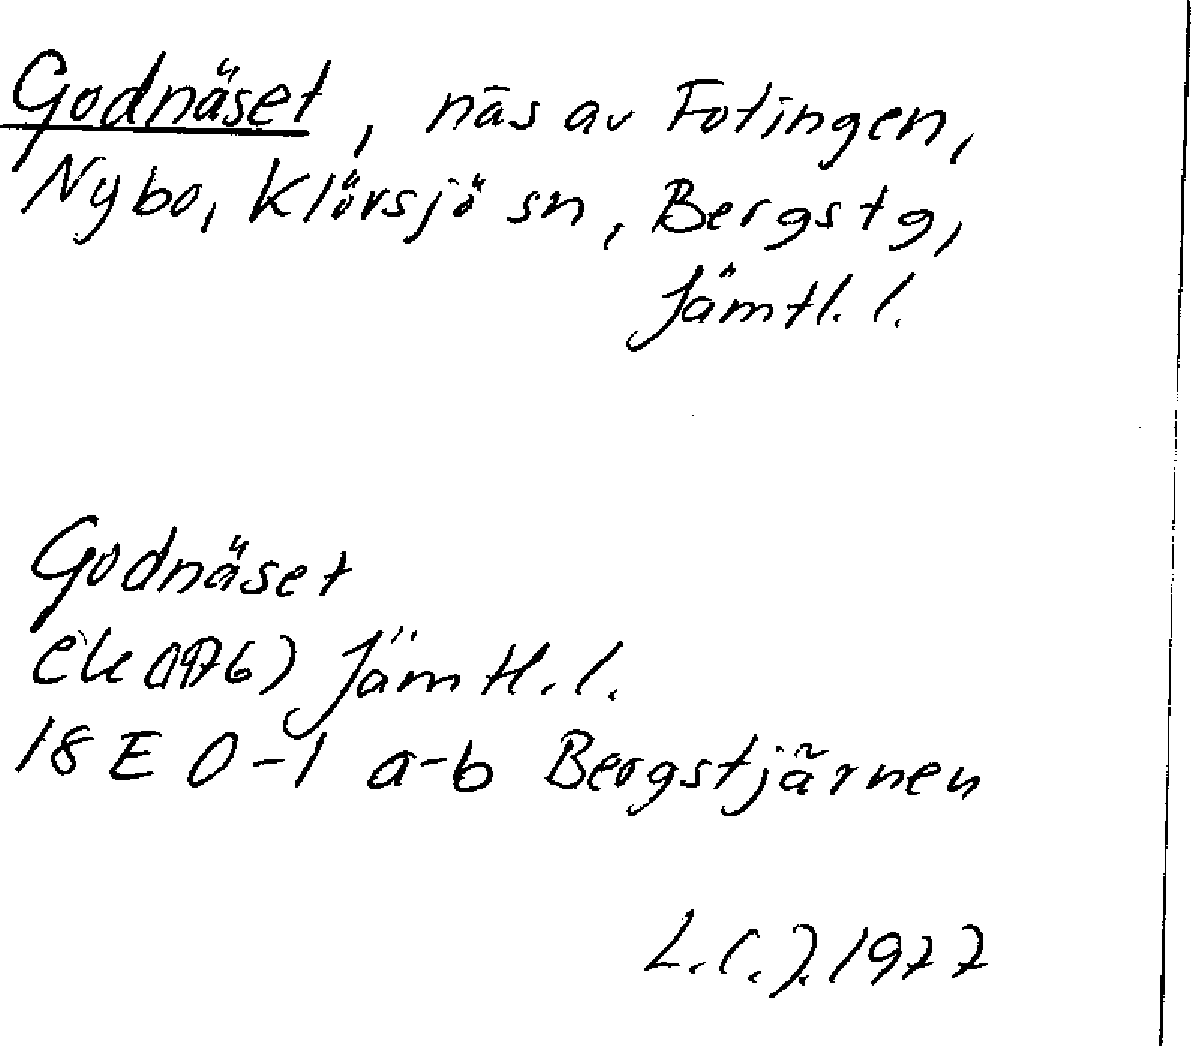 Godnäset, näs av Fotingen,
Nybo, Klövsjö sn, Bergs tg,
Jämtl. l.
Godnäset
ek (1976) Jämtl. l.
18 E 0-1 a-b Bergstjärnen
L.C.J. 1977